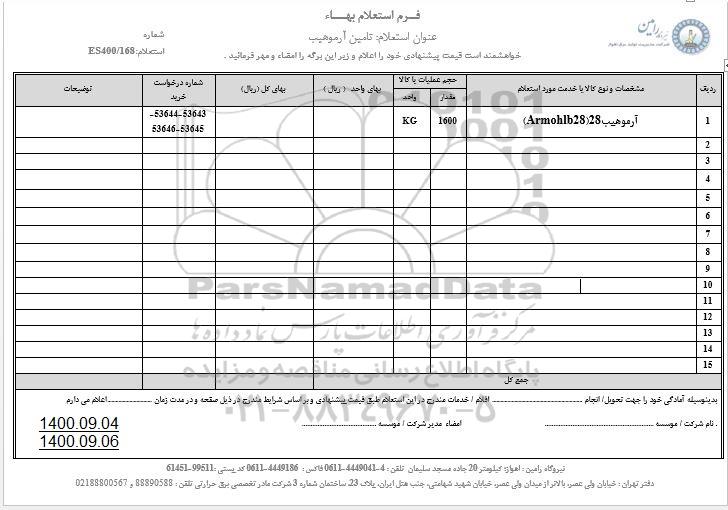 فـرم استعلام بهـاء
عنوان استعلام: تامین آرموهیب
شماره
استعلام:ES400/168
خواهشمند است قیمت پیشنهادی خود را اعلام و زیر این برگه را امضاء و مهر فرمائید .
نیروگاه رامین
شرکت مدیریت تولید برق اهواز
ردیف
مشخصات و نوع کالا یا خدمت مورد استعلام
حجم عملیات یا کالا
مقدار
واحد
بهای واحد ( ریال )
بهای کل (ریال)
شماره درخواست خرید
توضیحات
1
آرموهیب28(Armohlb28)
1600
KG
53643-53644-
53645-53646
2
3
4
5
6
7
8
9
10
11
12
13
14
15
جمع کل
ParsNamadData
مرکز فرآوری اطلاعات پارس نماد داده ها
پایگاه اطلاع رسانی مناقصه و مزایده
۰۲۱-۸۸۳۴۹۶۷۰-۵
بدینوسیله آمادگی خود را جهت تحویل/ انجام .......................... اقلام / خدمات مندرج در این استعلام طبق قیمت پیشنهادی و بر اساس شرایط مندرج در ذیل صفحه و در مدت زمان ................ اعلام می دارم
. نام شرکت / موسسه .......................... امضاء مدیر شرکت / موسسه ..........................
1400.09.04
1400.09.06
نیروگاه رامین : اهواز: کیلومتر 20 جاده مسجد سلیمان تلفن : 4-4449041-0611 فاکس : 4449186-0611 کد پستی :99511-61451
دفتر تهران : خیابان ولی عصر، بالاتر از میدان ولی عصر، خیابان شهید شهامتی، جنب هتل ایران، پلاک 23، ساختمان شماره 3 شرکت مادر تخصصی برق حرارتی تلفن : 88890588 و 02188800567